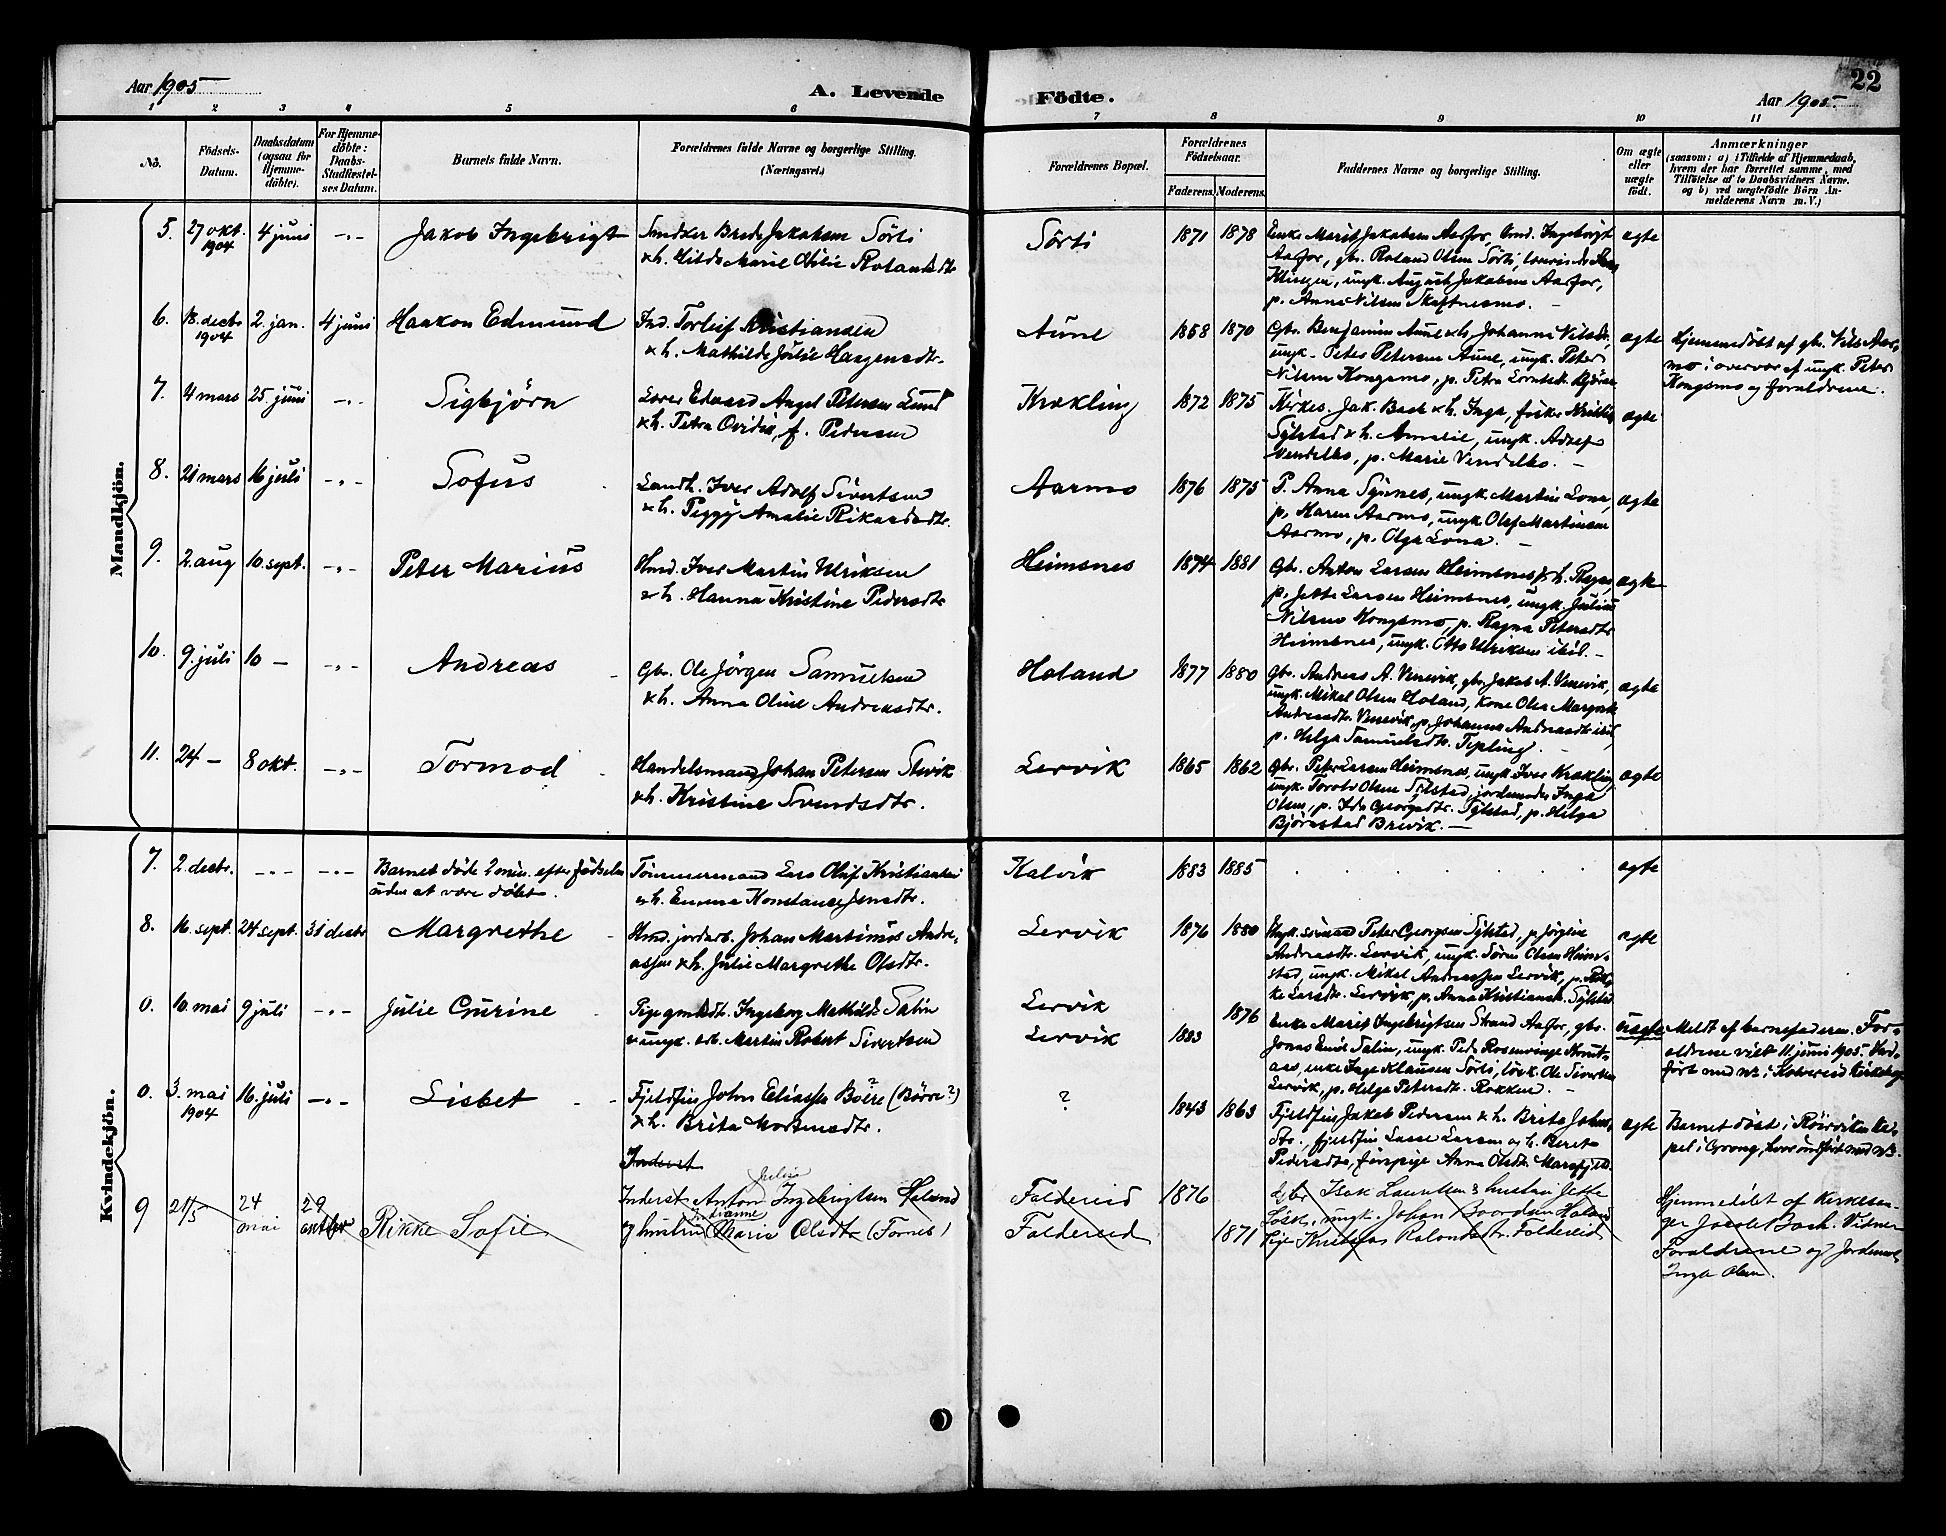 Aar 1905
A. Levende
Födte.
22
Aar 1905
1 2 3 4 5 6 7 8 9 10 11
No.
Födsels-
Datum.
Daabsdatum
(ogsaa for
Hjemme-
döbte).
For Hjemme-
döbte:
Daabs-
Stadfæstel-
ses Datum.
Barnets fulde Navn.
Forældrenes fulde Navne og borgerlige Stilling.
(Næringsvei.)
Forældrenes Bopæl.
Forældrenes
Födselsaar.
Faderens.
Moderens.
Faddernes Navne og borgerlige Stilling.
Om ægte
eller
uægte
födt.
Anmærkninger
(saasom: a) i Tilfælde af Hjemmedaab,
hvem der har forrettet samme, med
Tilföielse af to Daabsvidners Navne,
og b) ved uægtefödte Börn An-
melderens Navn m. V.)
Mandkjön.
5. 27 okt. 1904 4 juni -"- Jakob Ingebrigt
Smdker Brede Jakobsen Sörli
& h. Hilda Marie Otilie Rolandsdtr
Sörli 1871 1878
Enke Marit Jakobsen Aasfor, Ingebrigt
Aasfor, gbr. Roland Olsen Sörli,
Klingen, ungk. August Jakobsen Aasfor,
p. Anna Nilsen Skaftnesmo. —
ægte
6. 18. decbr 1904 2. jan. 4 juni Haakon Edmund
Ind. Torleif Kristiansen
& h. Mathilde Julie Haagensdtr.
Aune 1868 1870
Gbr. Benjamin Aune & h. Johanna Nilsdtr,
ungk. Peter Petersen Aune, ungk. Peter
Nilsen Kongsmo, p. Petra
ægte
Hjemmedöbt af gbr. Nils Aar-
mo i overvær af ungk. Peter
Kongsmo og forældrene.
7. 4 mars 25. juni -"- Sigbjörn
Lærer Edvard Angel Petersen Lund
& h. Petra Ovidia, f. Pedersen
Krækling 1872 1875
Kirkes. Jak. Bach & h. Inga, fisker
Sylstad & h. Amalie, ungk. Adolf
Vendelbo, p. Marie Vendelbo. —
ægte
8. 21 mars 16 juli -"- Sofus
Landh. Iver Adolf Sivertsen
& h. Peggy Amalie Rikardsdtr.
Aarmo 1876 1875
P. Anna Synnes, ungk. Martin Lona,
p. Karen Aarmo, ungk. Olaf Martinsen
Aarmo, p. Olga Lona. —
ægte
9. 2. aug 10. sept. -"- Peter Marius
Hmd. Iver Martin Ulriksen
& h. Hanna Kristine Pedersdtr
Heimsnes 1874 1881
Gbr. Anton Larsen Heimsnes & h.
p. Jette Larsen Heimsnes, ungk. Julius
Nilsen Kongsmo, p. Ragna Petersdtr
Heimsnes, ungk. Otto Ulriksen ibid. —
ægte
10. 9. juli 10 — -"- Andreas
Gbr. Ole Jörgen Samuelsen
& h. Anna Oline Andreasdtr.
Høland 1877 1880
Gbr. Andreas A. Vennevik, gbr. Jakob A. Vennevik,
ungk. Mikal Olsen Høland, kone Olea Margrete
Andreasdtr. Vennevik, p. Johanna Andreasdtr ibid,
p. Helga Samuelsdtr. Tepling. —
ægte
11. 24 — 8 okt. -"- Tormod
Handelsmand Johan Petersen Strøik
& h. Kristine Svendsdtr.
Lervik 1865 1862
Gbr. Peter Larsen Heimsnes, ungk. Iver Krækling
ungk. Torolv Olsen Sylstad, jordmoder Inga
Olsen, p. Ida Georgsdtr. Sylstad, p. Helga
Björnstad Brevik. —
ægte
Kvindekjön.
7. 2. decbr. -"- -"- Barnet døde 2 min. efter födselen
uden at være döbt.
Tömmermand Lars Oluf Kristiansen
& h. Emma Konstance Jensdtr.
Kalvik 1883 1885
ægte
8. 16. sept. 24 sept. 31 decbr Margrethe
Hmd. jordarb. Johan Martinus Andre-
assen & h. Julie Margrethe Olsdtr.
Lervik 1876 1880
Ungk. Peter Georgsen Sylstad, p. Jörgine
Andreasdtr. Lervik, ungk. Sören Olsen Heim-
stad, ungk. Mikal Andreassen Lervik, p. Rik-
ke Larsdtr. Lervik, p. Anna Kristiansdtr. Sylstad
ægte
0. 10. mai 9 juli -"- Julie Gurine
Pige Ingeborg Mathilde Salin
& ungk. arb. Martin Robert Sivertsen
Lervik
Lervik 1883 1876
Enke Marit Ingebrigtsen Strand Aasfor, gbr.
Jonas Emil Salin, ungk. Peder Rosenvinge
aas, enke Inge Klausen Sörli, lösk. Ole Sivertsen
Lervik, p. Helga Petersdtr. Rokken.
uægte
Meldt af barnefaderen. For-
ældrene viet 11 juni 1905. Ind-
fört med № i Kolvereid kirkebog
0. 3. mai 1904 16. juli -"- Lisbet
Fjeldfin John Eliassen Boërre (Börre?)
& h. Brita Mortensdtr.
? 1843 1863
Fjeldfin Jakob Pedersen & h. Brita Johns-
dtr., fjeldfin Lasse Larsen og h. Beret
Pedersdtr, finpige Anna Olsdtr Marsfjeld.
ægte
Barnet döbt i Röirvikens ka-
pel i Grong, hvor indfört med №.
Inderst
9 21/5 24 mai 29 oktbr Rikke Sofie
Julius
Inderst Anton Ingebrigtsen Høland
og hustru Marie Olsdtr (Fornes)
Foldereid 1876
Foldereid 1871
Gbr Isak Lauritsen & hustru Jette
Lösk, ungk. Johan Høland
Pige Rolandsdtr. Foldereid
Hjemmedöbt af kirkesan-
ger Jacob Bach. Vidner
Forældrene og Jordemor
Inga Olsen.